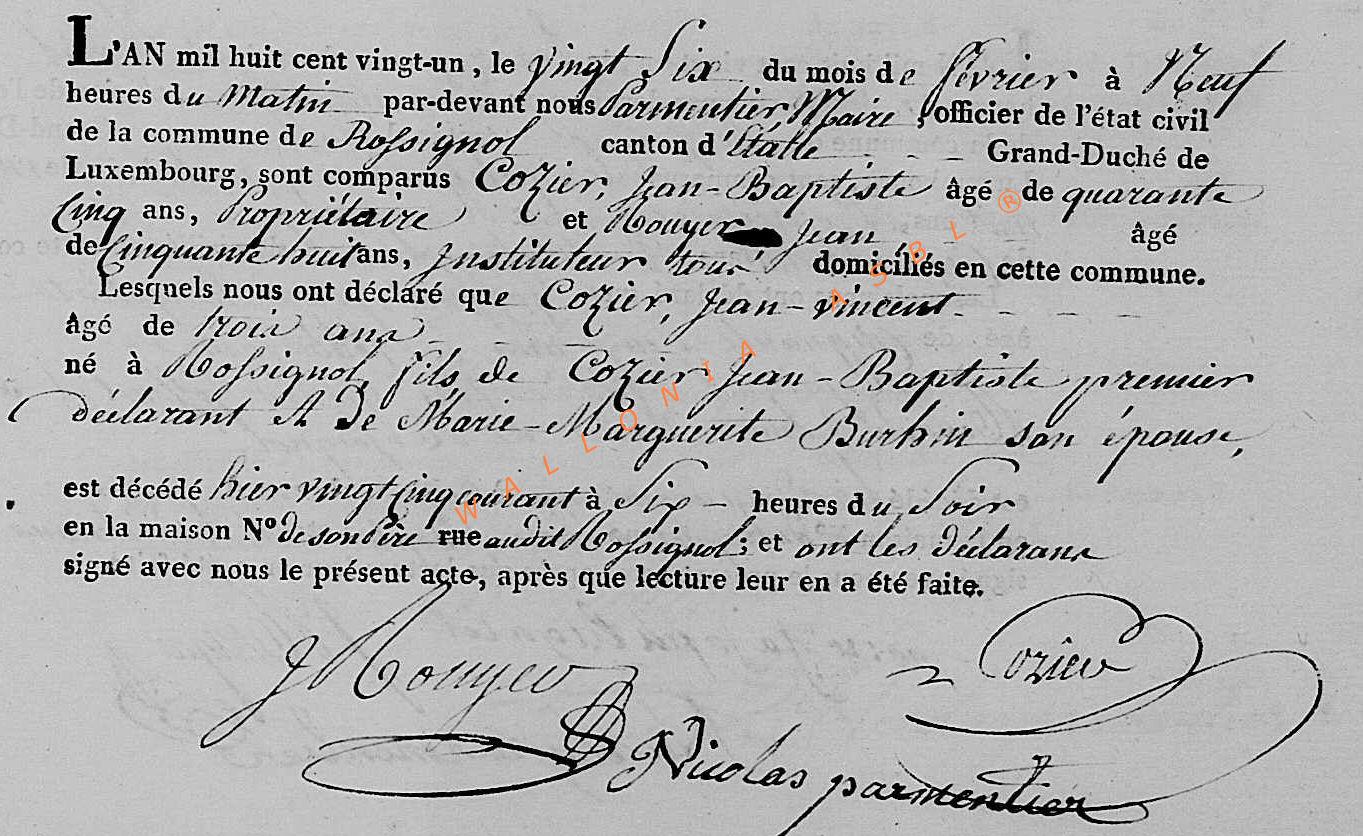 L'AN mil huit cent vingt-un, le vingt Six du mois de février à Neuf
heures du Matin par-devant nous Parmentier, Maire, officier de l'état civil
de la commune de Rossignol canton d'Étalle - - - Grand-Duché de
Luxembourg, sont comparus Cozier, Jean-Baptiste âgé de quarante
Cinq ans, Propriétaire et Rouyer Jean - - - âgé
de Cinquante huit ans, Instituteur tous domiciliés en cette commune.
Lesquels nous ont déclaré que Cozier, Jean-vincent - - - -
âgé de trois ans - - -
né à Rossignol, fils de Cozier Jean-Baptiste premier
déclarant et de Marie-Marguerite Burhin son épouse,
est décédé hier vingt Cinq courant à Six - heures du Soir
en la maison N° de son Père rue audit Rossignol; et ont les déclarans
signé avec nous le présent acte, après que lecture leur en a été faite.
J Rouyer
Cozier
Nicolas parmentier
WALLONIA ASBL ®